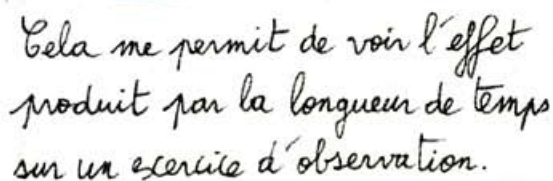 Cela me permit de voir l'effet
produit par la longueur de temps
sur un excercice d'observation.